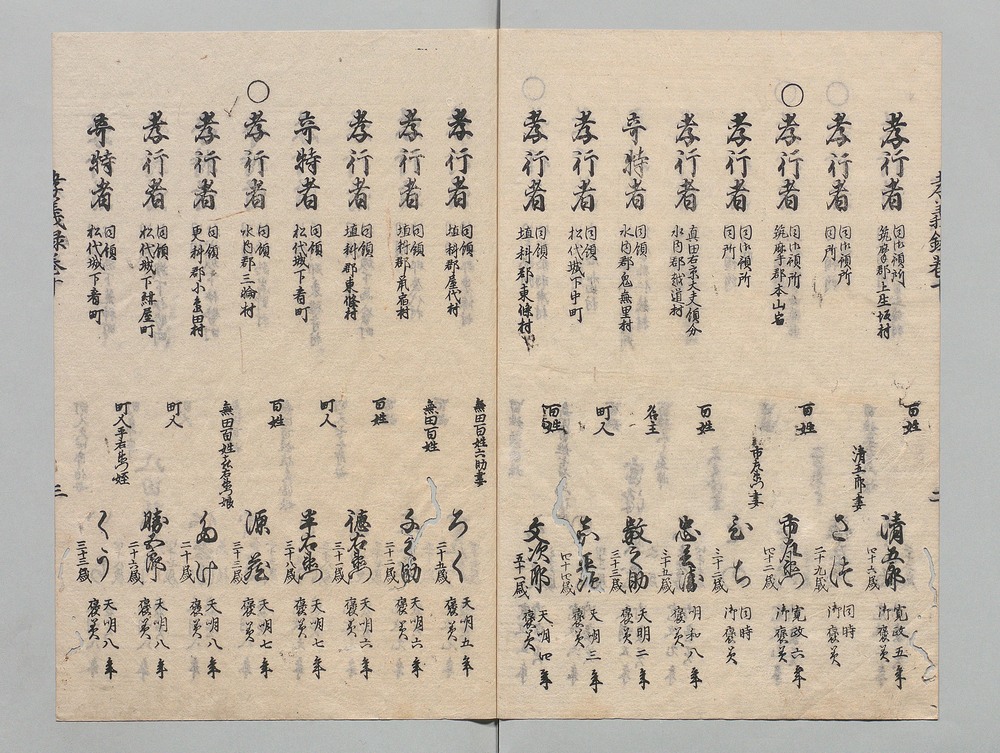 孝行者 同御領所 筑摩郡上生坂村 百姓 清五郎 四十六歳 寛政五年 御褒美
孝行者 同御領所 同所 清五郎妻 さは 二十九歳 同時 御褒美
孝行者 同御領所 筑摩郡本山宿 百姓 市左衛門 四十二歳 寛政六年 御褒美
孝行者 同御領所 同所 市左衛門妻 三十二歳 同時 御褒美
孝行者 真田右京大夫領分 水内郡越道村 百姓 忠兵衛 三十五歳 明和八年 褒美
奇特者 同領 水内郡鬼無里村 名主 数之助 三十三歳 天明二年 褒美
孝行者 同領 松代城下中町 町人 四十四歳 天明三年 褒美
孝行者 同領 埴科郡東條村 百姓 文次郎 五十一歳 天明四年 褒美
孝行者 同領 埴科郡屋代村 無田百姓六助妻 ろく 二十五歳 天明五年 褒美
孝行者 同領 埴科郡前宿村 無田百姓 之助 二十二歳 天明六年 褒美
孝行者 同領 埴科郡東條村 百姓 徳右衛門 三十一歳 天明六年 褒美
奇特者 同領 松代城下肴町 町人 半右衛門 三十八歳 天明七年 褒美
孝行者 同領 水内郡三輪村 百姓 源蔵 三十三歳 天明七年 褒美
孝行者 同領 更科郡小島田村 無田百姓喜右衛門娘 たけ 二十歳 天明八年 褒美
孝行者 同領 松代城下紺屋町 町人 勝五郎 二十六歳 天明八年 褒美
奇特者 同領 松代城下肴町 町人平右衛門姪 くう 三十三歳 天明八年 褒美
孝義録巻十
三